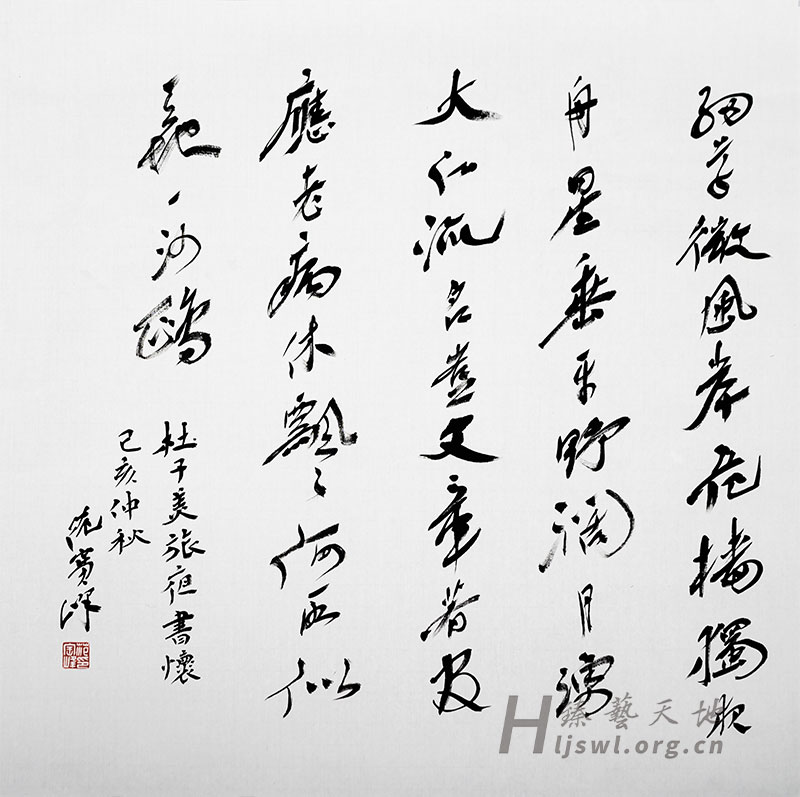 細草微風岸危檣獨夜
舟星垂平野闊月湧
大江流名豈文章著官
應老病休飄〻何所似
天地一沙鷗
杜子美旅夜書懷
己亥仲秋
范寶
臻藝天地
Hljswl.org.cn